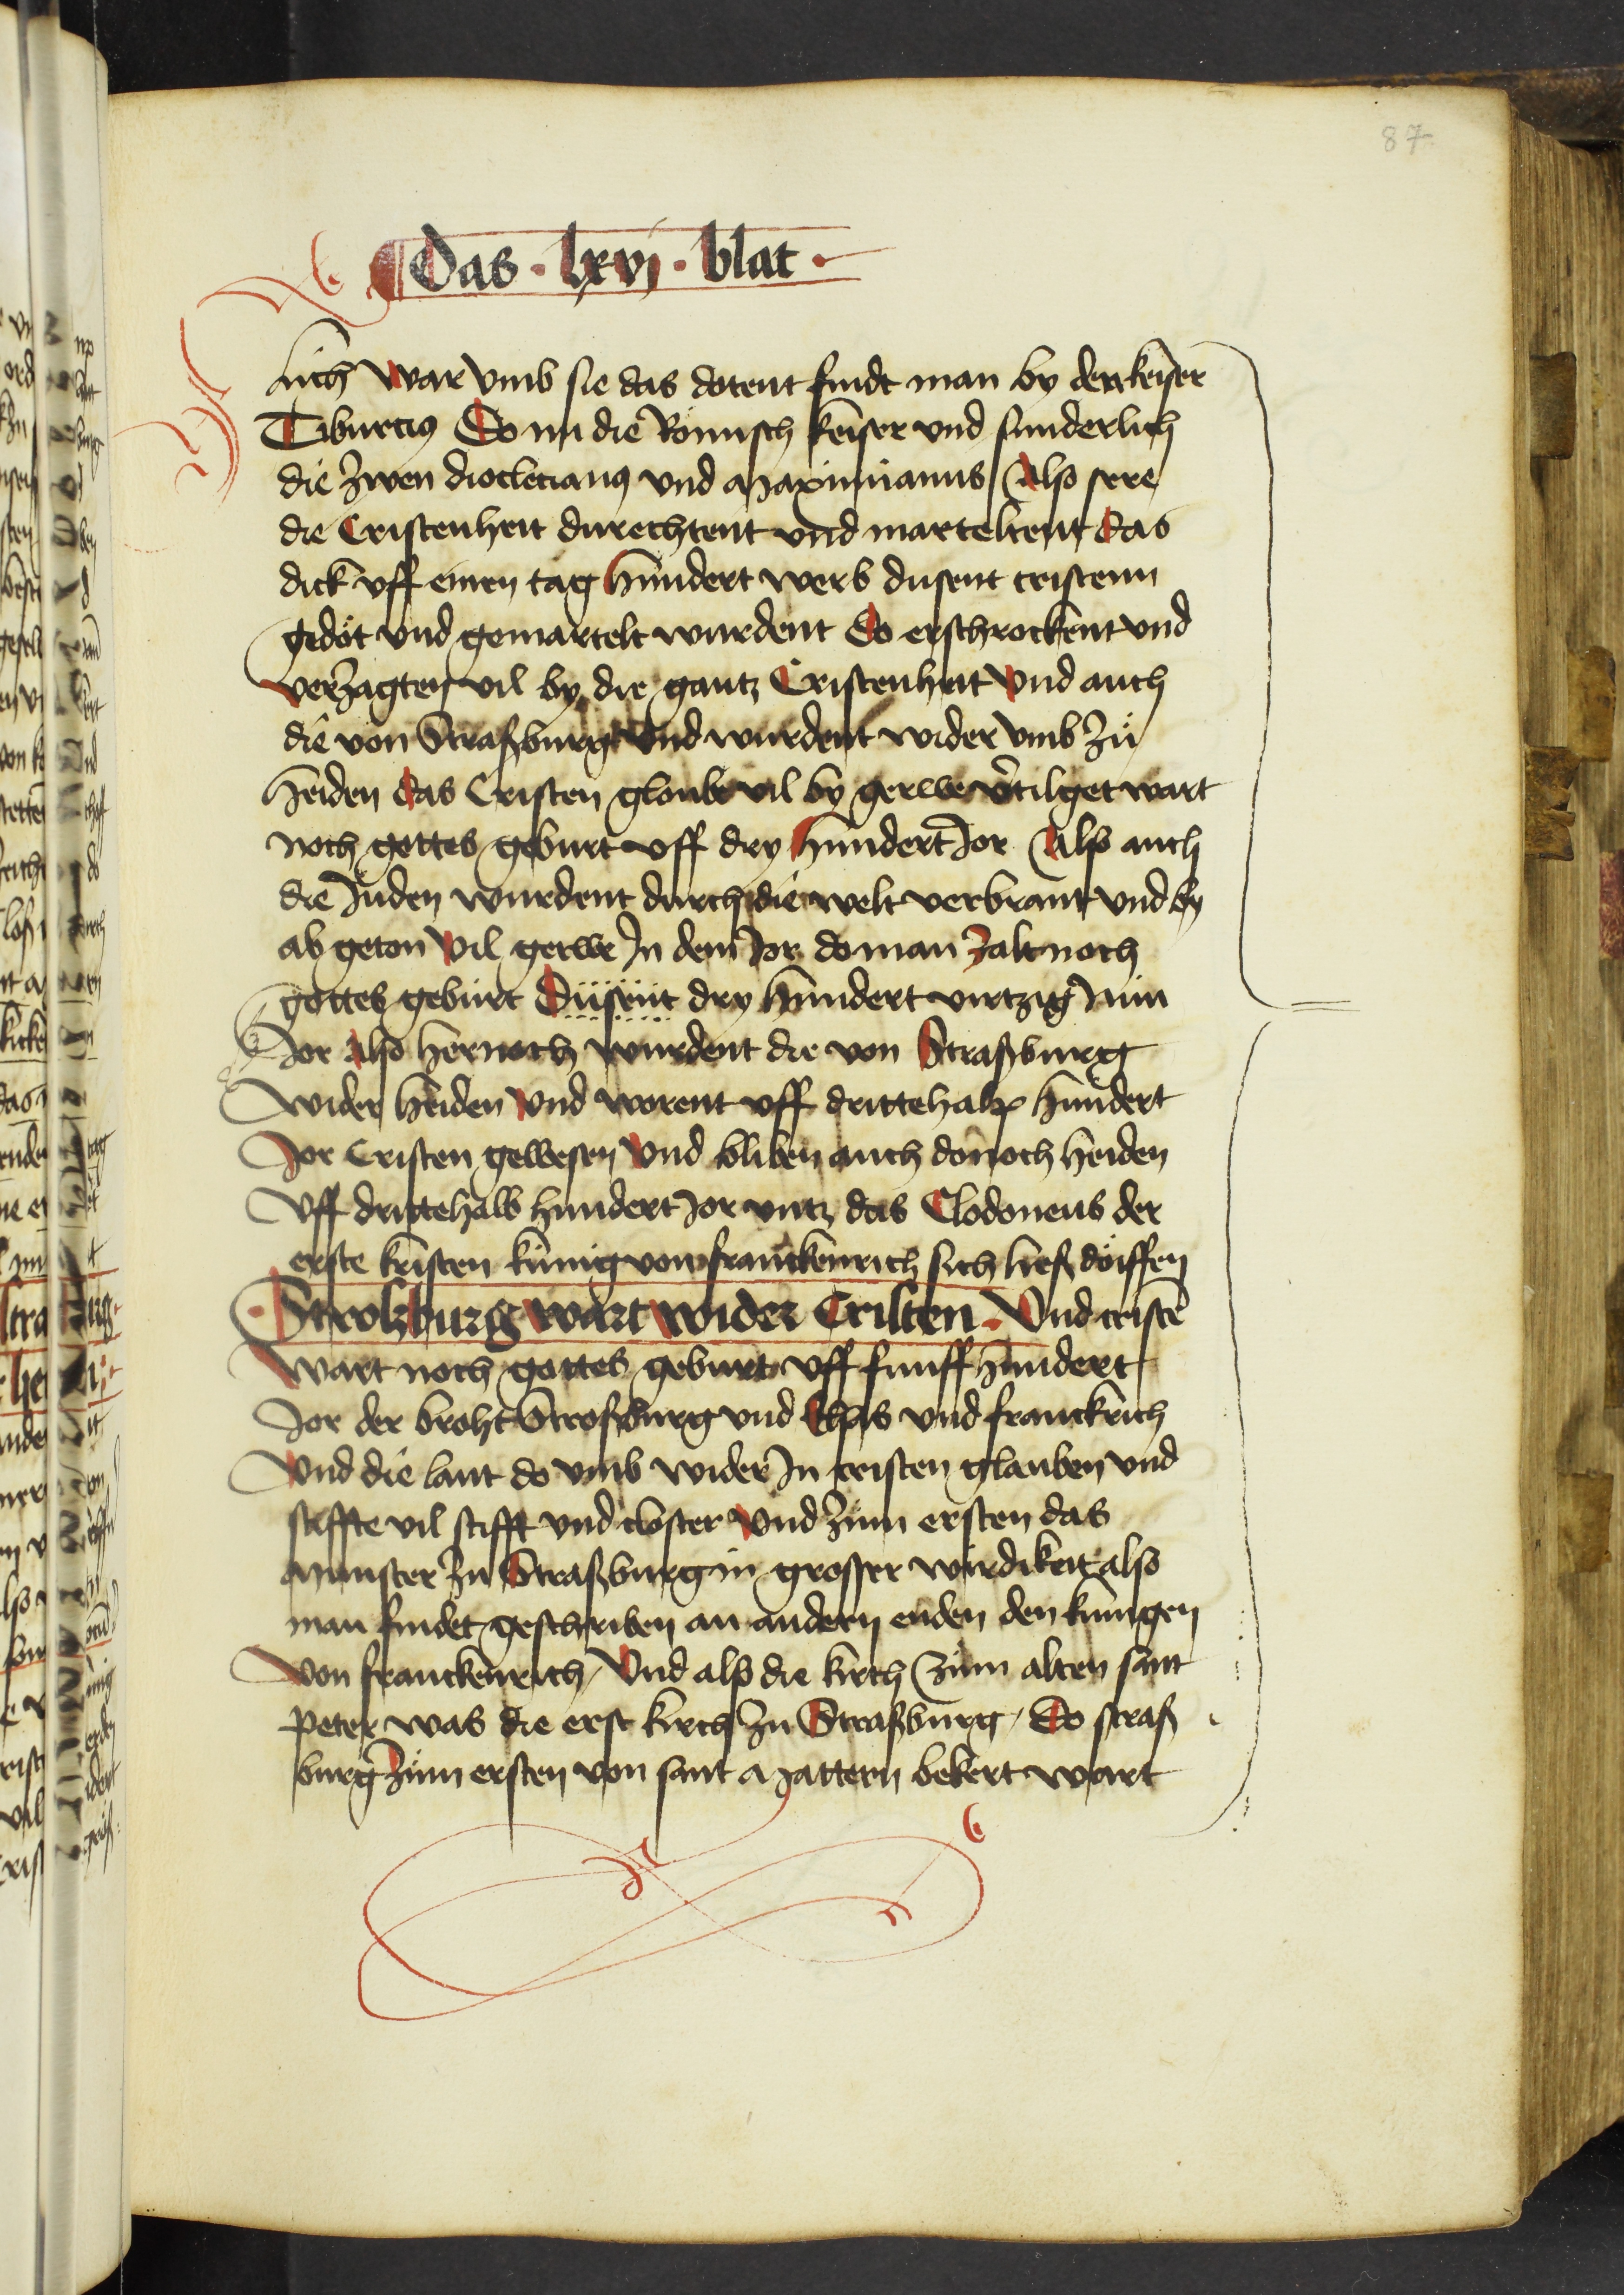 87
Das · lxvj · blat ·
Auch war vmb sie das dotent findt man by den keiser
Tiburcius Do nu die Römisch keiser vnd sunderlich
die zwen dioclecianus vnd Maximianus Also sere
die Cristenheit durechtent vnd marteltent das
dick vff einen tag hundert werb dusent cristenn
gedöt vnd gemartelt wurdent Do erschrockent vnd
verzagten vil by die gantz Cristenheit vnd auch
die von Straßburg vnd wurdent wider vmb zů
heiden das Cristen gloube vil by gerwe vertilget wart
noch gottes geburt vff dry hundert Jor Also auch
die Juden wurdent durch die welt verbrant vnd by
ab geton vil gerwe Jn dem Jor do man zalt noch
gottes geburt Düsent dry hundert viertzig Nün
Jor Also hernoch wurdent die von Straßburg
wider heiden vnd worent vff drittehalp hundert
Jor Cristen gewesen vnd bliben auch donoch heiden
vff drittehalb hundert Jor vntz das Clodoueus der
erste kristen künig von franckenrich sich ließ döiffen
· Stroßburg wart wider Cristen · Vnd cristē
wart noch gottes geburt vff funff hundert
Jor der broht Stroßburg vnd Elsas vnd franckrich
vnd die lant do vmb wider Jn cristen glauben vnd
stiffte vil stifft vnd closter vnd zům ersten das
Munster zu Straßburg in grosser wirdikeit also
man findet geschriben an andern enden den künigen
von franckenrich / Vnd also die kirch zům alten sant
Peter was die erst kirch zu Straßburg / Do straß
burg zům ersten von sant Mattern bekert wart